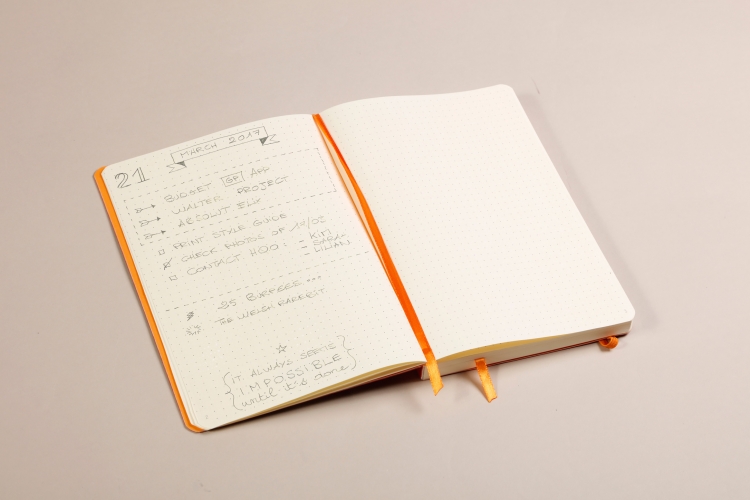 MARCH 2017
21
BUDGET GP APP
WALTER PROJECT
ABSOLUT
PRINT STYLE GUIDE
CHECK PHOTOS OF 14/02
CONTACT HOO: - KIM
- SARA
- LILIAN
35 BUFFERS...
THE WELSH RAREBIT
IT ALWAYS SEEMS
IMPOSSIBLE
until it's done